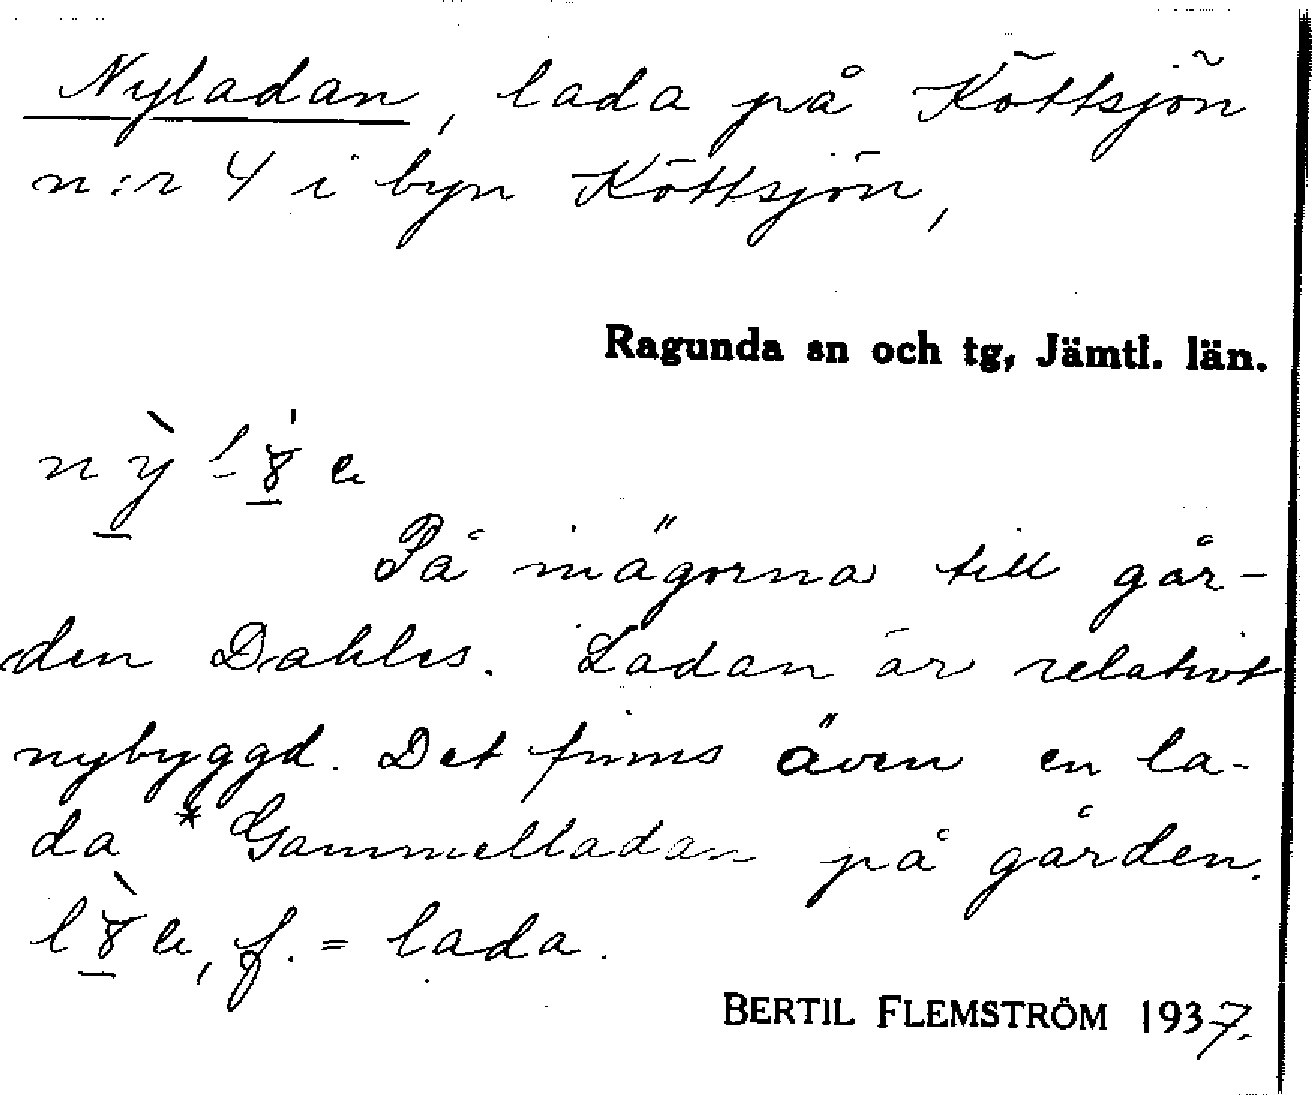 Nyladan, lada på Köttsjön
n:r 4 i byn Köttsjön,
Ragunda sn och tg, Jämtl. län.
På inägorna till går-
den Dahles. Ladan är relativt
nybyggd. Det finns även en la-
da *Gammelladan på gården.
f. = lada.
BERTIL FLEMSTRÖM 1937.